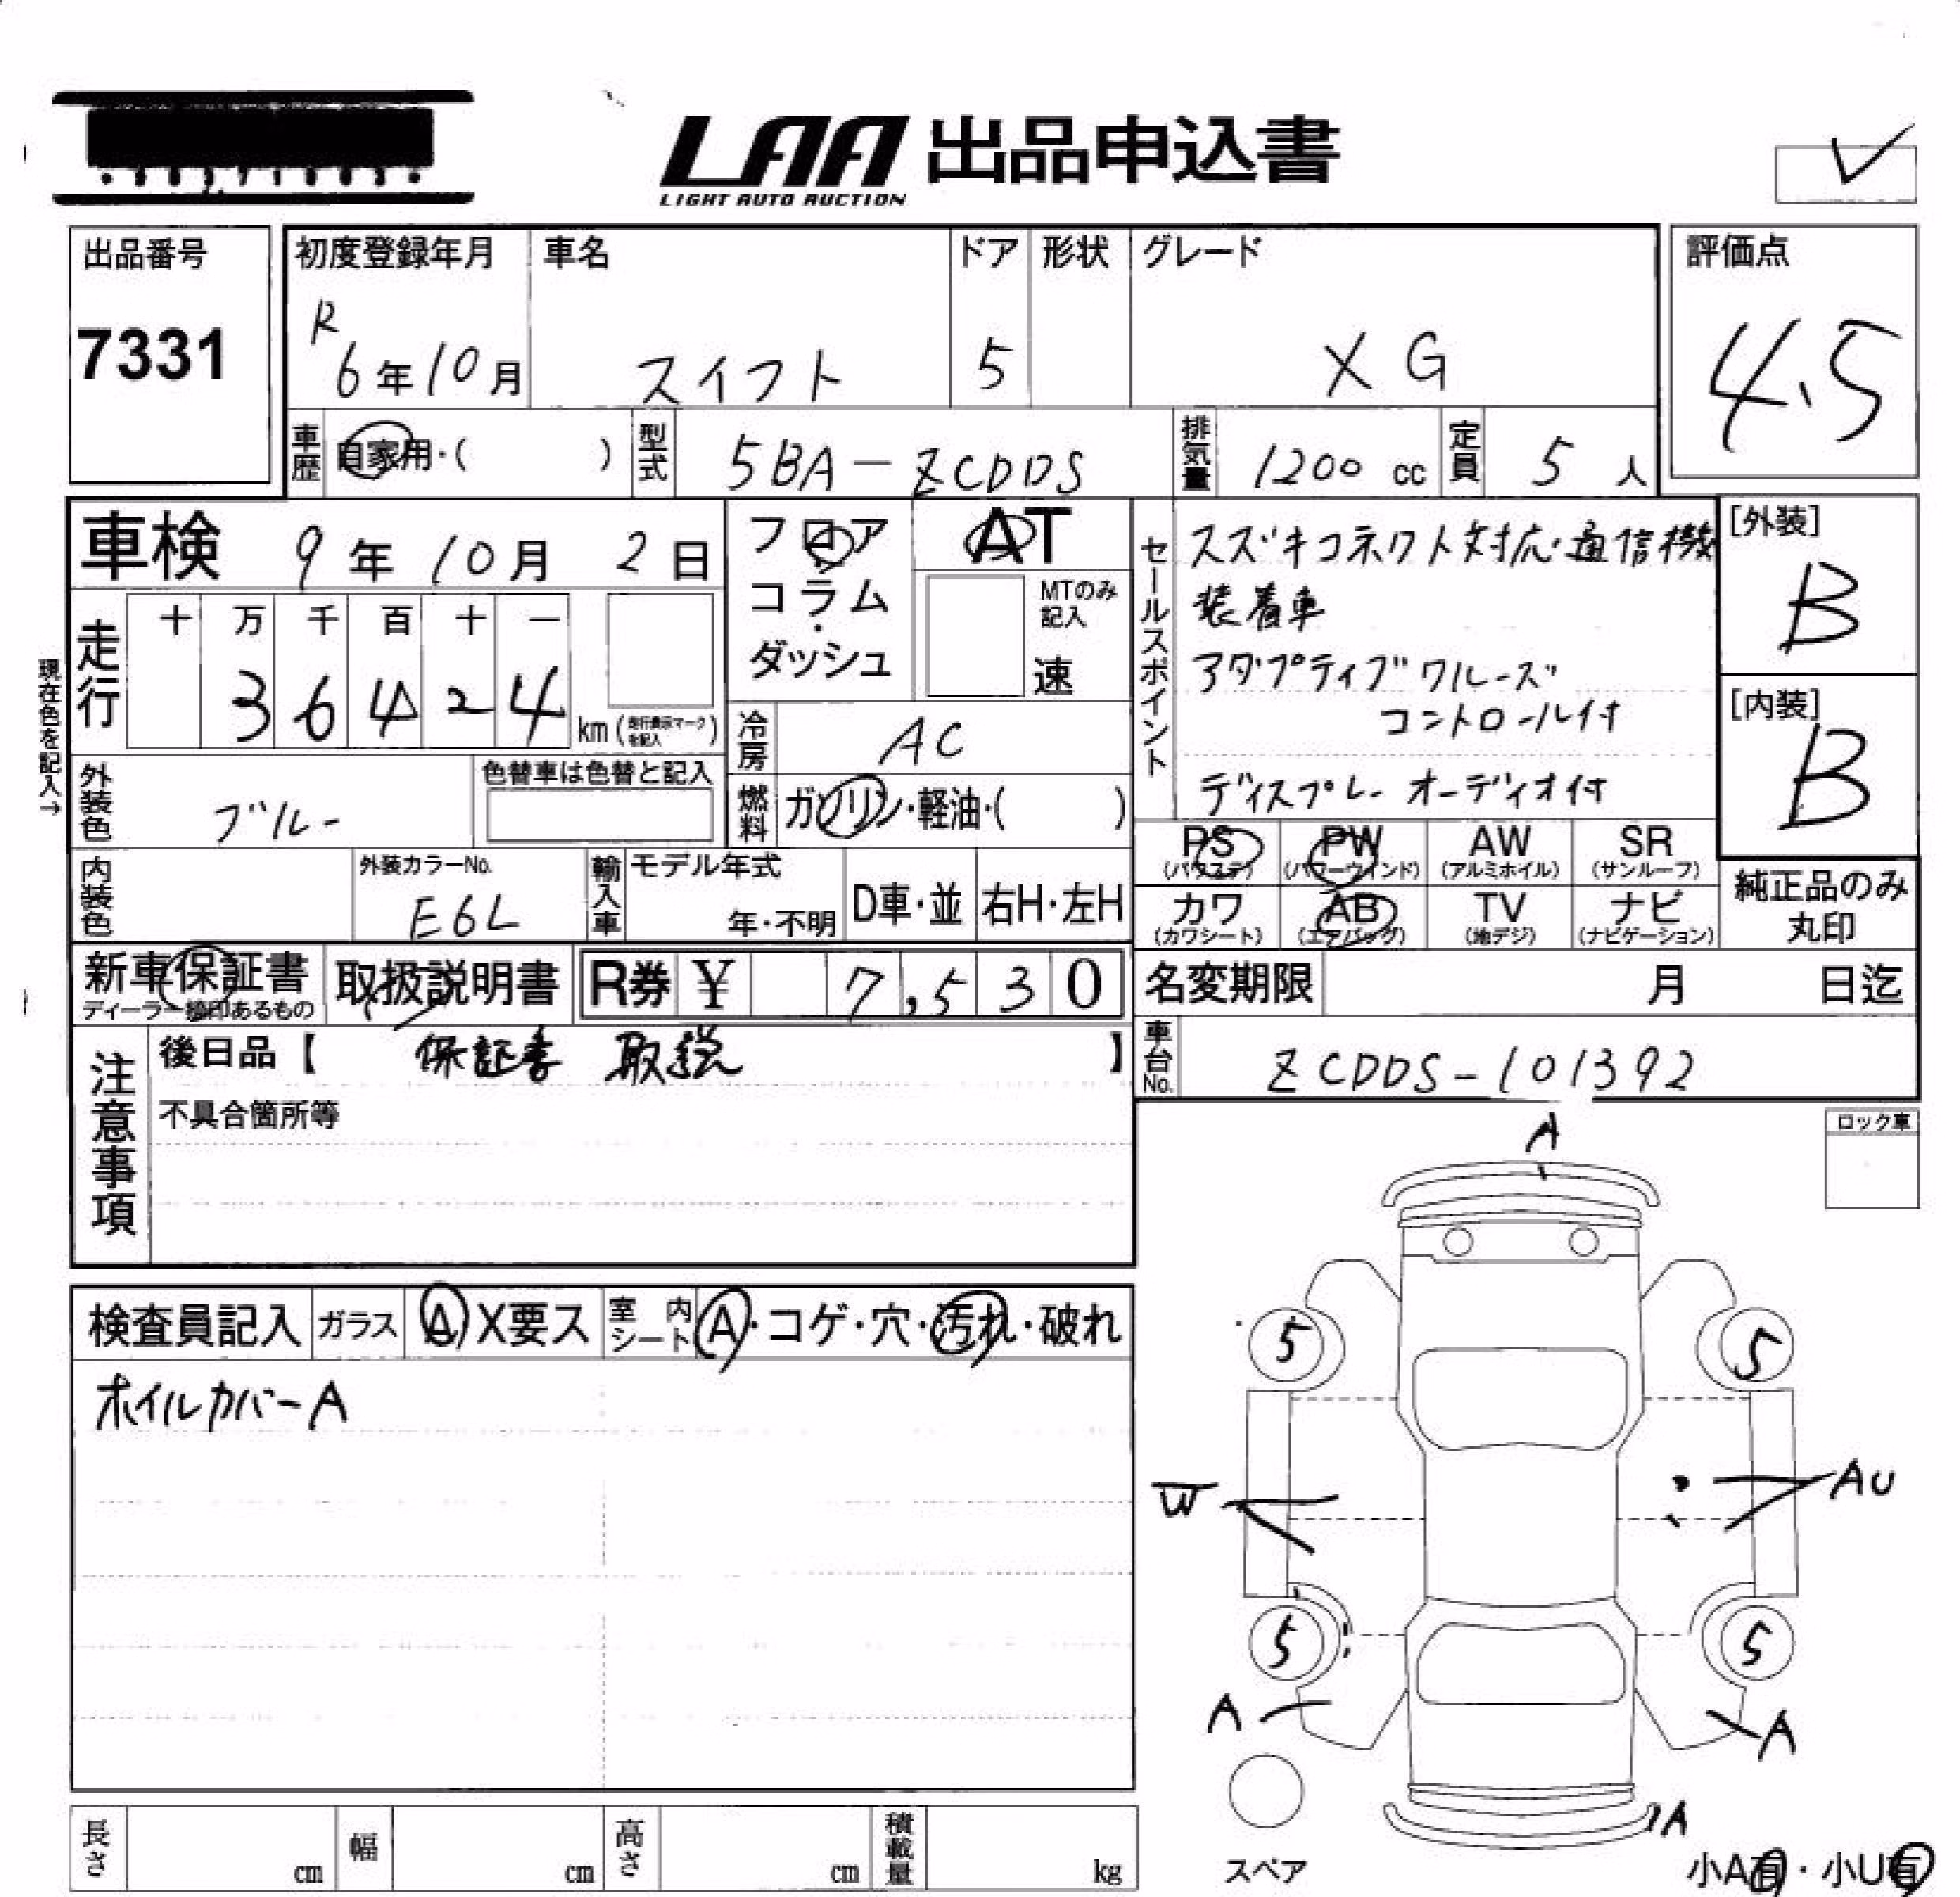 LAA 出品申込書
LIGHT AUTO AUCTION
出品番号
7331
初度登録年月
R
6年10月
車名
スイフト
ドア
5
形状
グレード
XG
評価点
4.5
車歴
自家用・( )
型式
5BA-ZCDDS
排気量
1200 cc
定員
5 人
車検 9年10月2日
フロア
コラム
・
ダッシュ
AT
MTのみ
記入
速
走行
十 万 千 百 十 一
3 6 4 2 4
km(走行表示マークを記入)
現在色を記入→
冷房
AC
外装色
ブルー
色替車は色替と記入
燃料
ガソリン・軽油・( )
内装色
外装カラーNo.
E6L
輸入車
モデル年式
年・不明
D車・並
右H・左H
セールスポイント
スズキコネクト対応・通信機
装着車
アダプティブクルーズ
コントロール付
ディスプレーオーディオ付
[外装]
B
[内装]
B
PS
(パワステ)
PW
(パワーウインド)
AW
(アルミホイル)
SR
(サンルーフ)
カワ
(カワシート)
AB
(エアバッグ)
TV
(地デジ)
ナビ
(ナビゲーション)
純正品のみ
丸印
新車保証書
ディーラー捺印あるもの
取扱説明書
R券 ¥ 7,530
名変期限 月 日迄
車台No.
ZCDDS-101392
注意事項
後日品【 保証書 取説 】
不具合箇所等
ロック車
検査員記入
ガラス
A X要ス
室内
シート
A・コゲ・穴・汚れ・破れ
ホイルカバーA
A
5
5
W
AU
5
5
A
A
A
スペア
小A有・小U有
長さ cm
幅 cm
高さ cm
積載量 kg